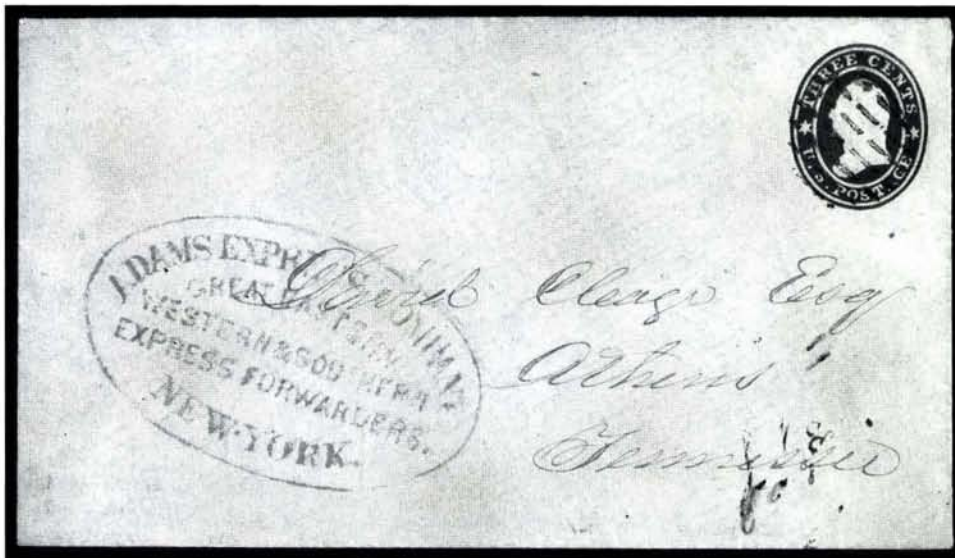 THREE CENTS
U.S. POSTAGE
ADAMS EXPRESS COMPANY
GREAT EASTERN
WESTERN & SOUTHERN
EXPRESS FORWARDERS.
NEW-YORK.
David Cleage Esq
Athens
Tennessee